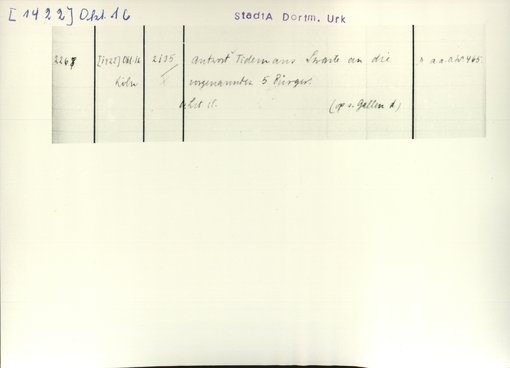 [1422] Okt. 16
StadtA Dortm. Urk
2267 [1422] Okt. 16 2135 Antwort Tidemans Swarte an die a a a a No 465.
Köln vorgenannten 5 Bürger.
(op s. Gallen d)